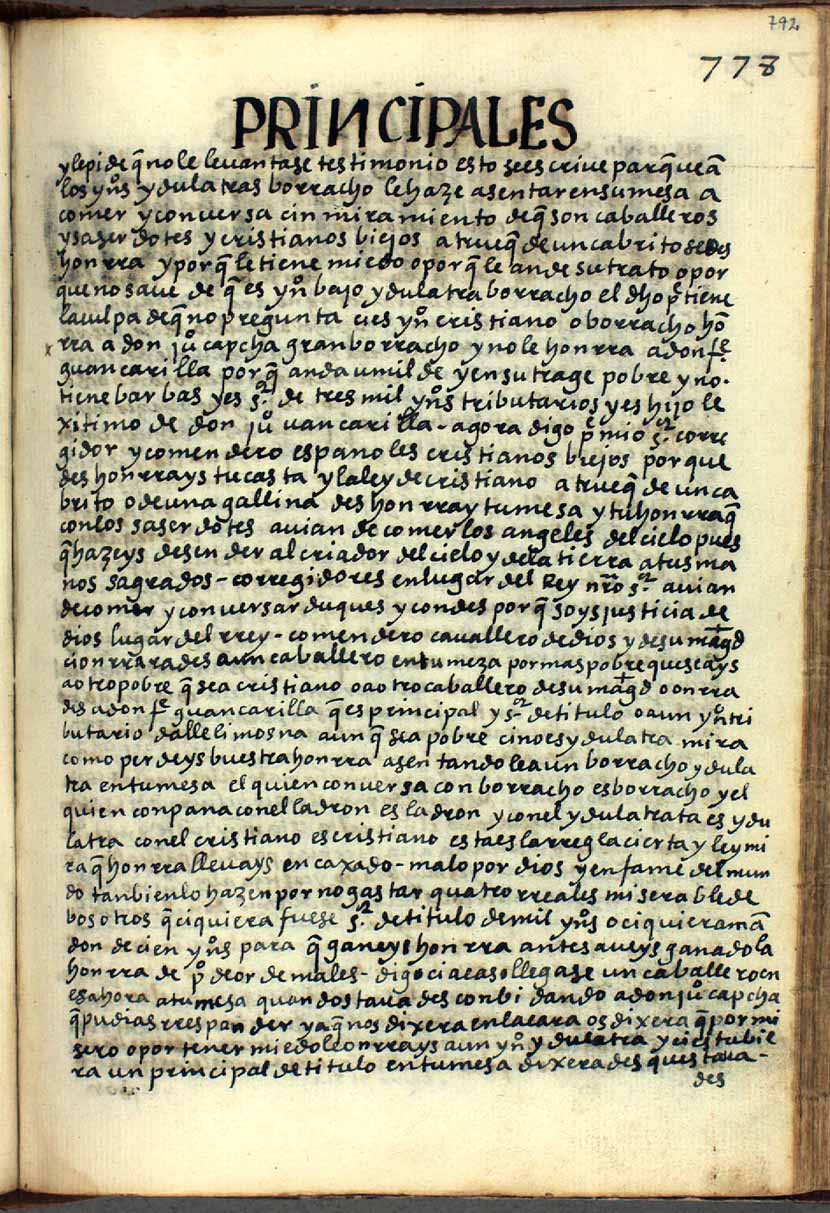 792
778
PRINCIPALES
y le pide q̃ no le levantase testimonio esto se escrive para q̃ vea
los yn̊s ydulatras borracho le haze asentar en su mesa a
comer y conversa cin miramiento de q̃ son caballeros
y saserdotes y cristianos biejos a trueq̃ de un cabrito se des
honrra y porq̃ le tiene miedo o porq̃ le ande su trato o por
que no save de q̃ es yn̊ bajo ydulatra borracho el dho p̊ tiene
la culpa de q̃ no pregunta ci es yn̊ cristiano o borracho hõ
rra a don jů capcha gran borracho y no le honrra a don fe̊
guancarilla porq̃ anda umilde y en su trage pobre y no
tiene barbas y es s.or de tres mil yn̊s tributarios y es hijo le
xitimo de don jů uancarilla - agora digo p̊ mio s.or corre
gidor y comendero españoles cristianos biejos porque
deshonrrays tu casta y la ley de cristiano a trueq̃ de un ca
brito o de una gallina deshonrray tu mesa y tu honrra q̃
con los saserdotes avian de comer los angeles del cielo pues
q̃ hazeys desender al criador del cielo y de la tierra a tus ma
nos sagrados - corregidores en lugar del Rey nr̃o s.or avian
de comer y conversar duques y condes porq̃ soys justicia de
dios lugar del rrey - comendero cavallero de dios y de su mag.d
ci onrrarades a un caballero en tu meza por mas pobre que seays
a otro pobre q̃ sea cristiano o a otro caballero de su mag.d o onrra
des a don fe̊ guancarilla q̃ es principal y s.or de titulo o a un yn̊ tri
butario dalle limosna aunq̃ sea pobre ci no es ydulatra mira
como perdeys buestra honrra asentandole a un borracho ydula
tra en tu mesa el quien conversa con borracho es borracho y el
quien conpana con el ladron es ladron y con el ydulatra ta es ydu
latra con el cristiano es cristiano esta es la rregla cierta y ley mi
ra q̃ honrra llevays encaxado - malo por dios y enfame del mun
do tanbien lo hazen por no gastar quatro rreales miserable de
bosotros q̃ ciquiera fuese s.or de titulo de mil yn̊s o ciquiera mã
don de cien yn̊s para q̃ ganeys honrra antes aveys ganado la
honrra de p̊ de or de males - digo ci acaso llegase un caballero en
esa hora a tu mesa quando stavades conbidando a don jů capcha
q̃ pudias rrespander ya q̃ nos dixera en la cara os dixera q̃ por mi
sero o por tener miedo le onrrays a un yn̊ ydulatra y ci estubie
ra un principal de titulo en tu mesa dixerades questava-
des